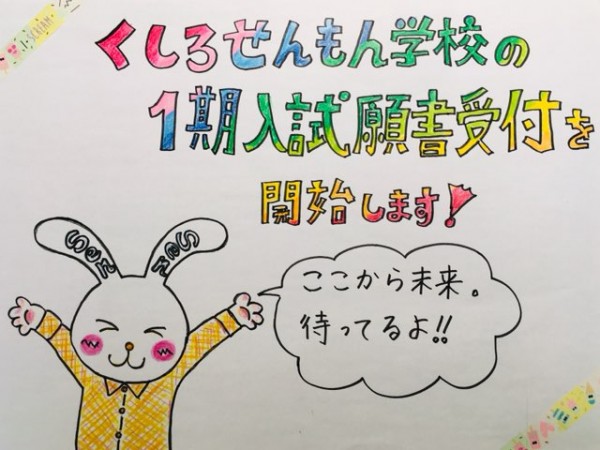 I・SCREAM
くしろせんもん学校の
1期入試願書受付を
開始します!
ここから未来。
待ってるよ!!